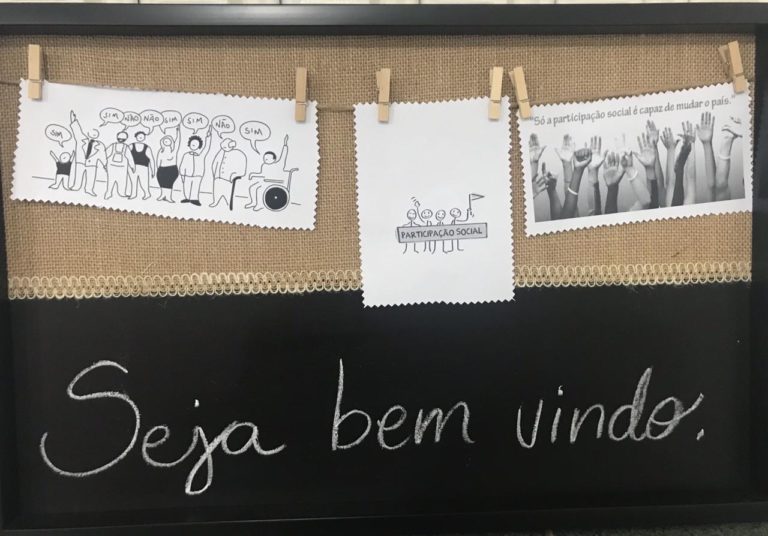 SIM
SIM
NÃO
NÃO
SIM
SIM
NÃO
SIM
PARTICIPAÇÃO SOCIAL
"Só a participação social é capaz de mudar o país."
Seja bem vindo.